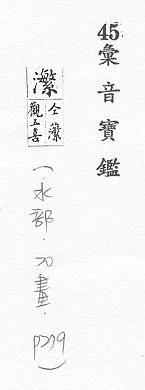 45彙音寶鑑
瀿
仝
觀五喜
(水部.畫.P279)